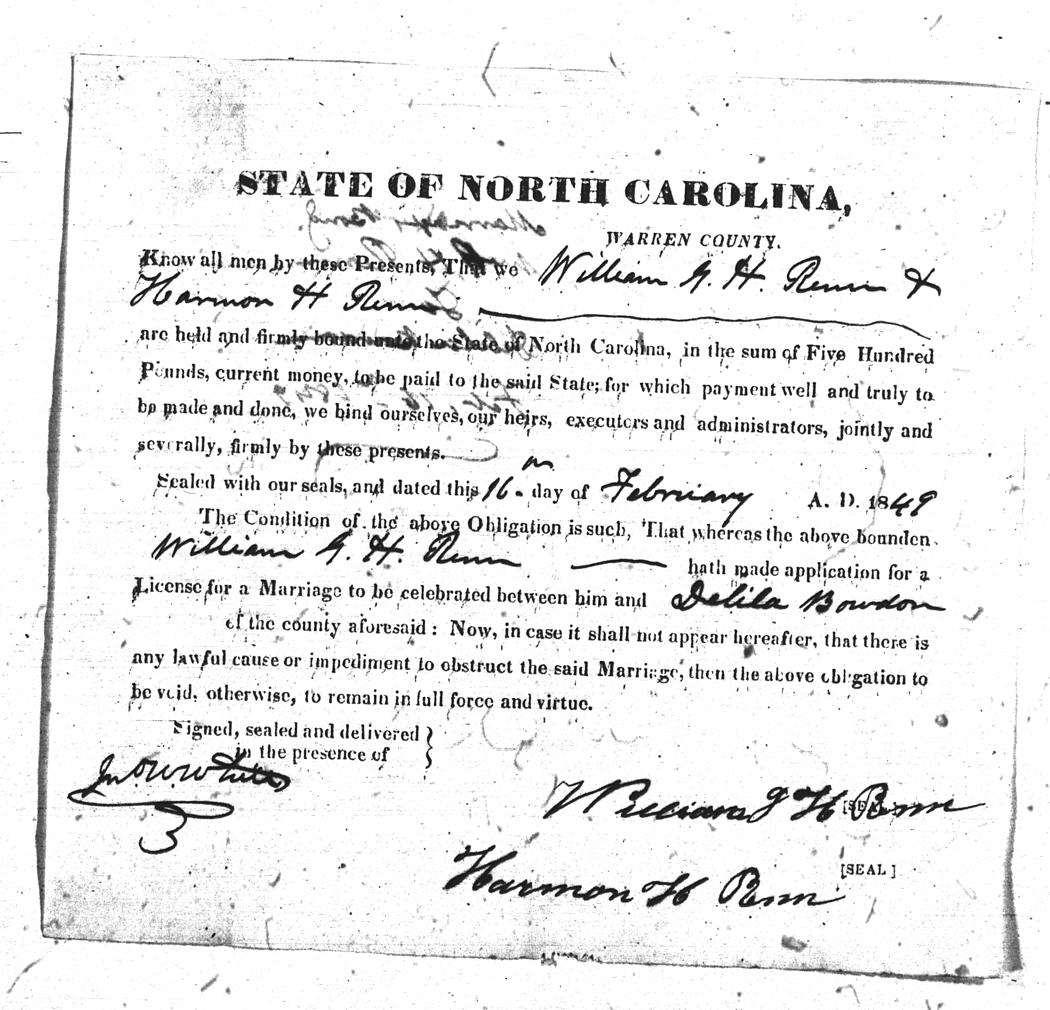 STATE OF NORTH CAROLINA,
WARREN COUNTY.
Know all men by these Presents, That we William G. H. Renn &
Harmon H Renn
are held and firmly bound unto the State of North Carolina, in the sum of Five Hundred
Pounds, current money, to be paid to the said State; for which payment well and truly to
be made and done, we bind ourselves, our heirs, executors and administrators, jointly and
severally, firmly by these presents.
Sealed with our seals, and dated this 16 day of February A. D. 1849
The Condition of the above Obligation is such, That whereas the above bounden
William G. H. Renn hath made application for a
License for a Marriage to be celebrated between him and Delila Bowdon
of the county aforesaid: Now, in case it shall not appear hereafter, that there is
any lawful cause or impediment to obstruct the said Marriage, then the above obligation to
be void, otherwise, to remain in full force and virtue.
Signed, sealed and delivered
in the presence of
Jno W White
William G H Renn [SEAL]
Harmon H Renn [SEAL]